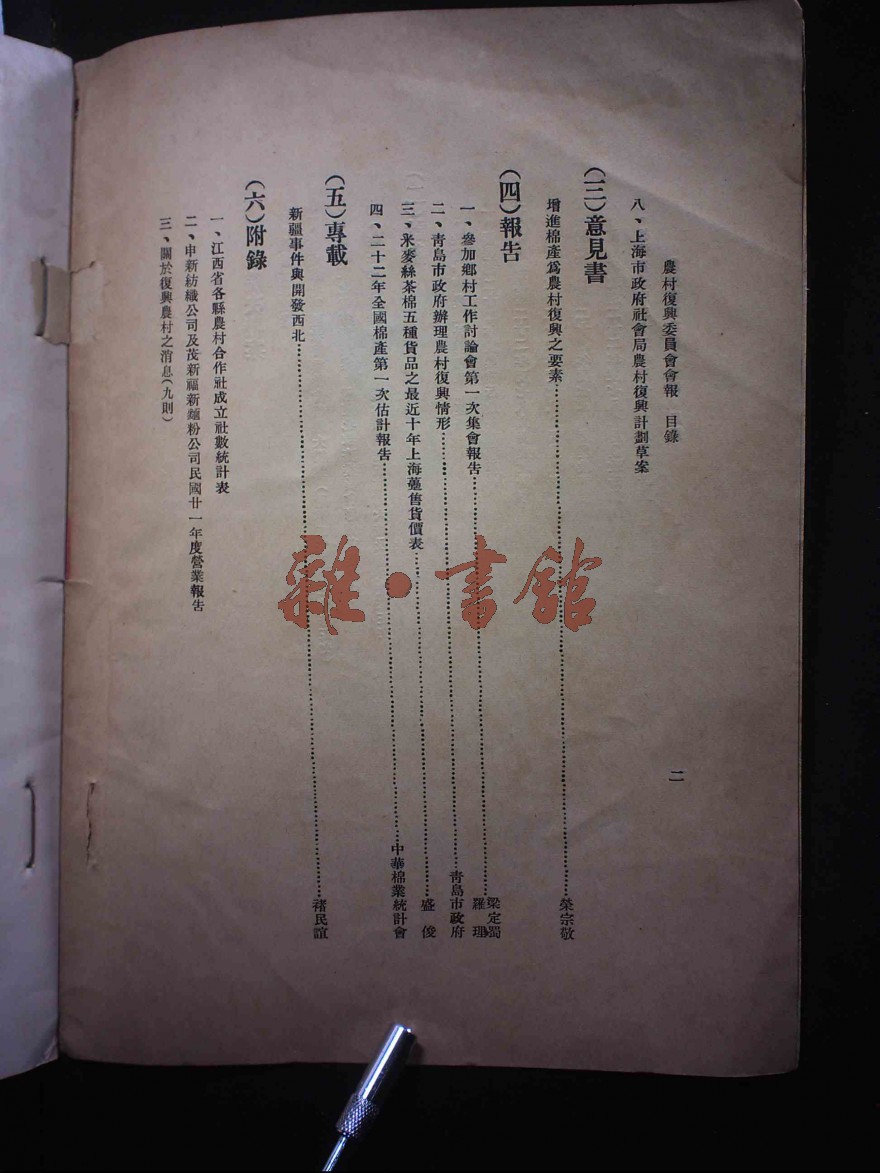 農村復興委員會會報　目錄
二
八、上海市政府社會局農村復興計劃草案
(三)意見書
增進棉產爲農村復興之要素……榮宗敬
(四)報告
一、參加鄉村工作討論會第一次集會報告……梁定蜀 羅理
二、青島市政府辦理農村復興情形……青島市政府
三、米麥絲茶棉五種貨品之最近十年上海躉售貨價表……盛俊
四、二十二年全國棉產第一次估計報告……中華棉業統計會
(五)專載
新疆事件與開發西北……褚民誼
(六)附錄
一、江西省各縣農村合作社成立社數統計表
二、申新紡織公司及茂新福新麵粉公司民國廿一年度營業報告
三、關於復興農村之消息(九則)
雜·書館